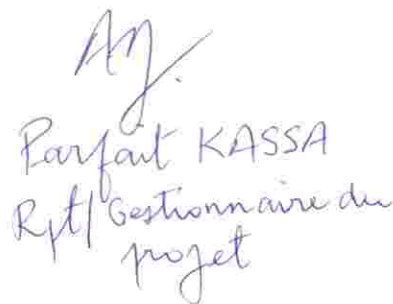 Parfait KASSA
Rpt/Gestionnaire du
projet